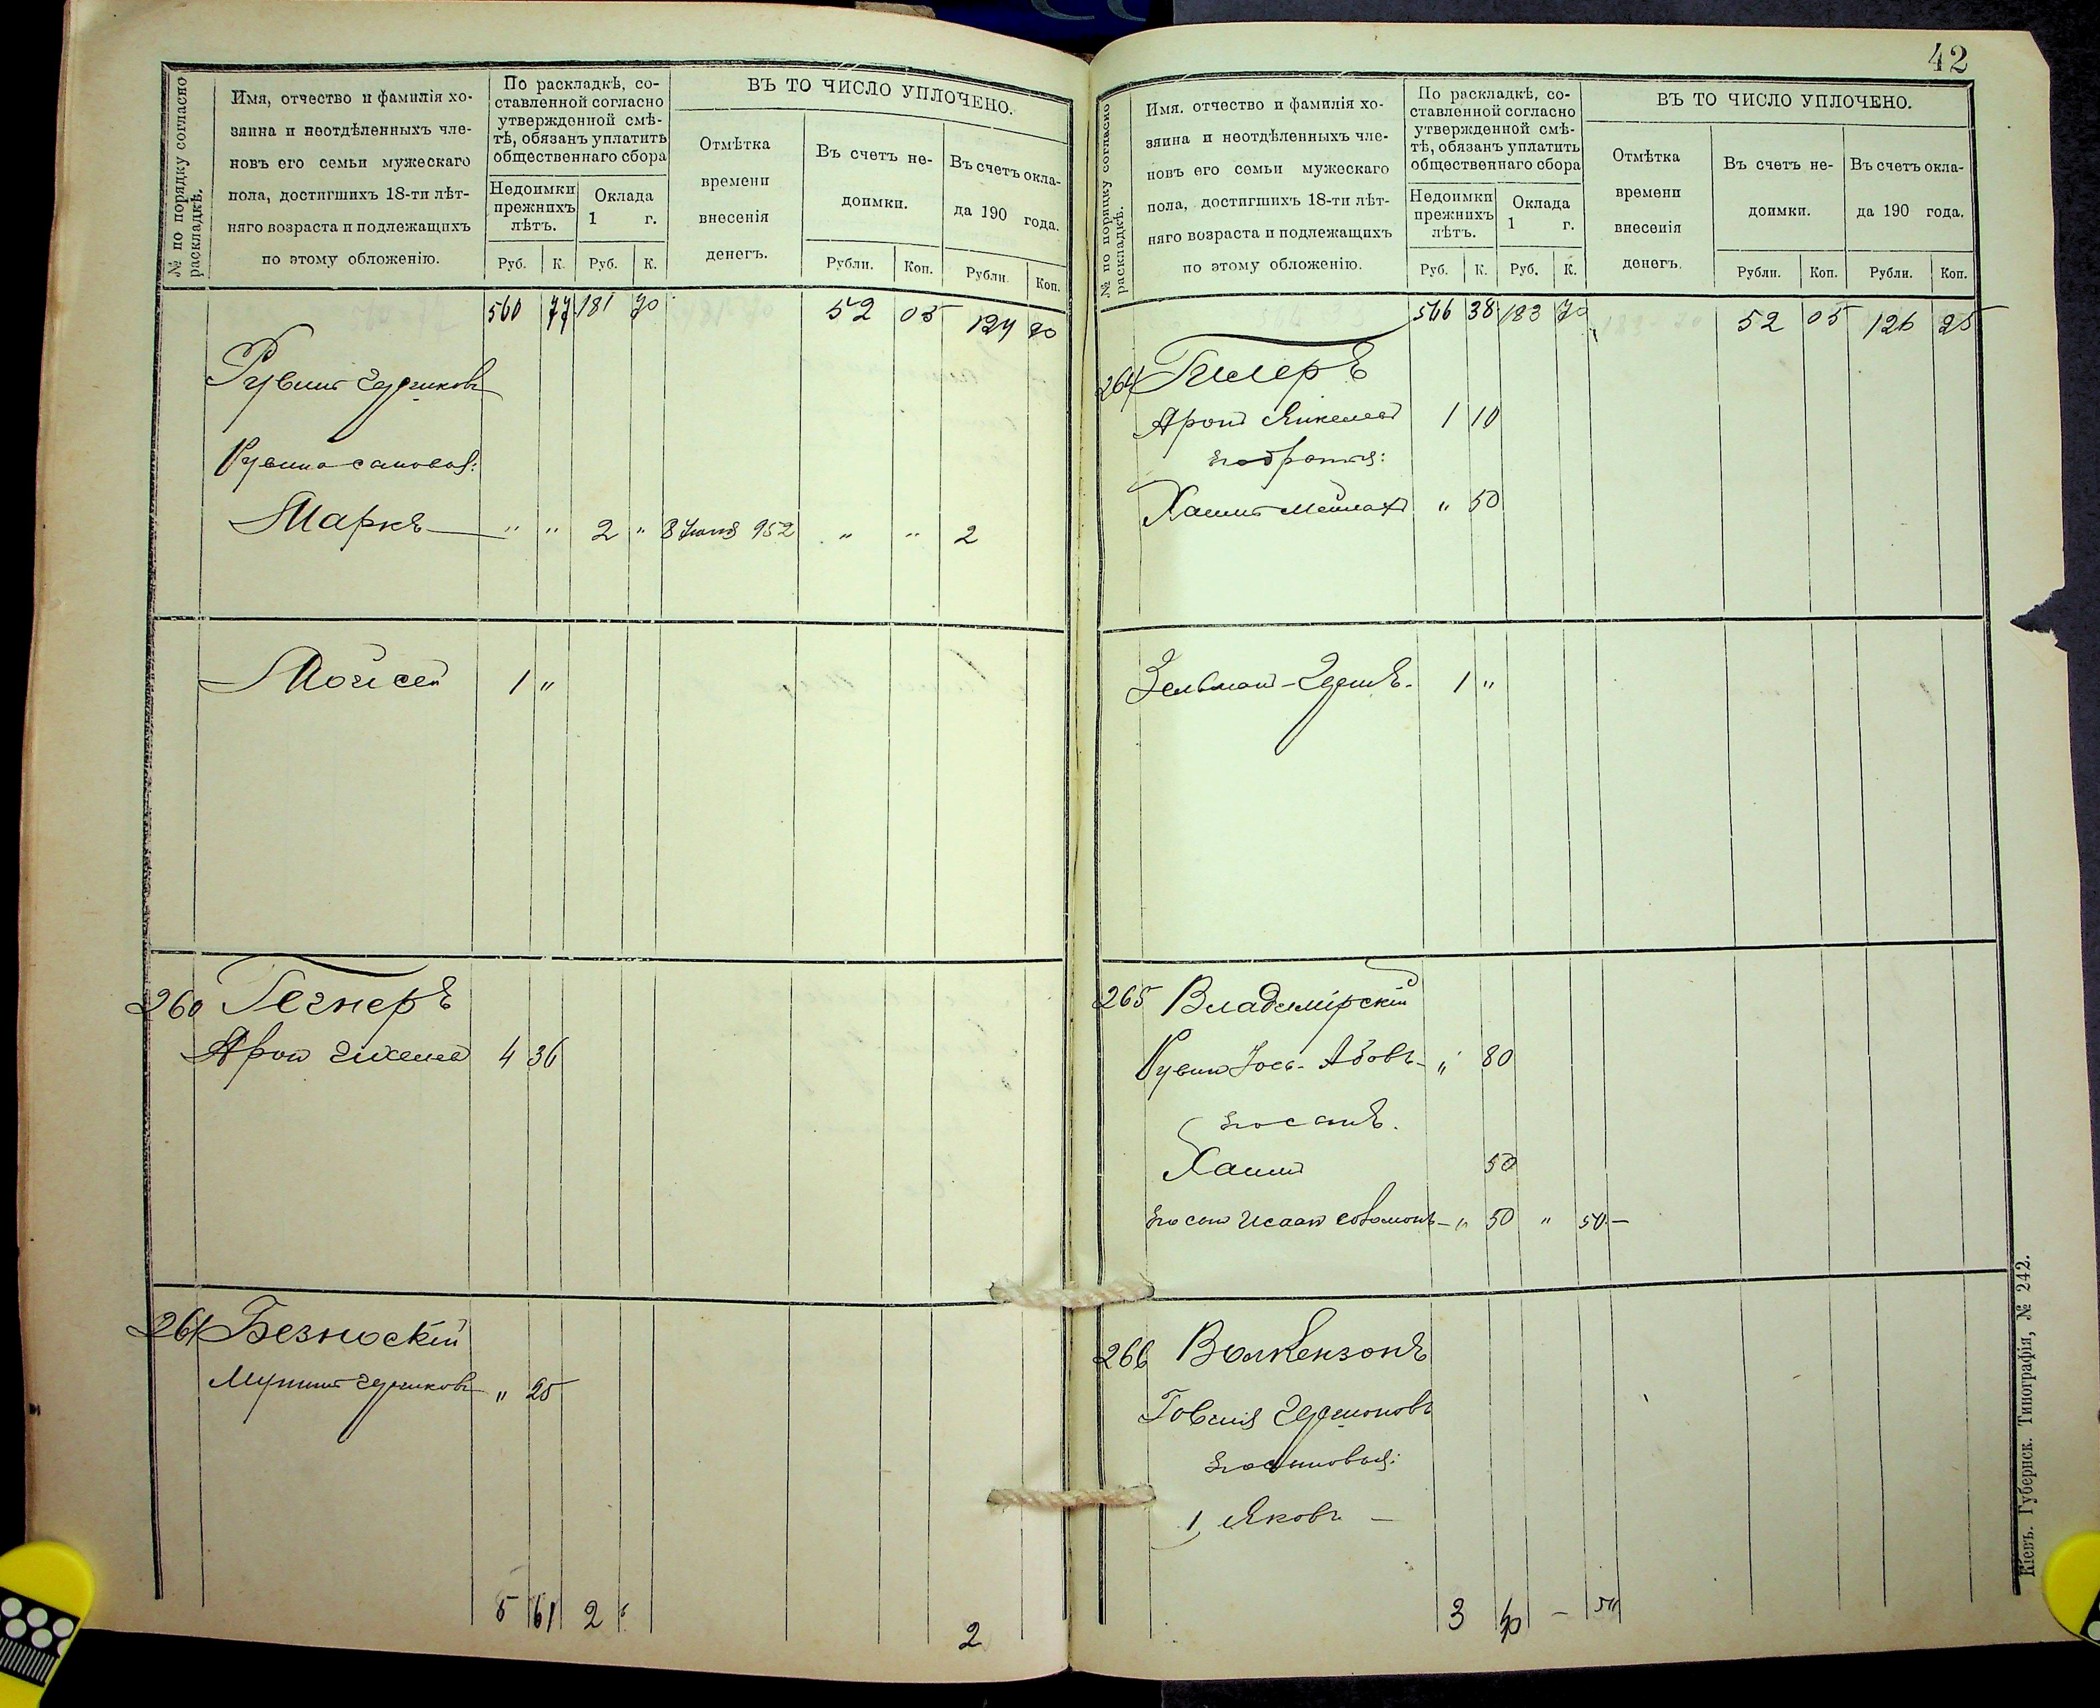 № по порядку согласно раскладкѣ.
Имя, отчество и фамилія хо-
зяина и неотдѣленныхъ чле-
новъ его семьи мужескаго
пола, достигшихъ 18-ти лѣт-
няго возраста и подлежащихъ
по этому обложенію.
По раскладкѣ, со-
ставленной согласно
утвержденной смѣ-
тѣ, обязанъ уплатить
общественнаго сбора
Недоимки
прежнихъ
лѣтъ.
Оклада
1 г.
Руб. К. Руб. К.
ВЪ ТО ЧИСЛО УПЛОЧЕНО.
Отмѣтка
времени
внесенія
денегъ.
Въ счетъ не-
доимки.
Рубли. Коп.
Въ счетъ окла-
да 190 года.
Рубли. Коп.
560 77 181 70 52 05 124
Рувинъ
Рувина сыновья:
Маркъ " " 2 " 8 " " 2
Мойсей 1 "
260 Гегнеръ
Аронъ 4 36
261 Безносскій
" 25
5 61 2
2
42
№ по порядку согласно раскладкѣ.
Имя. отчество и фамилія хо-
зяина и неотдѣленныхъ чле-
новъ его семьи мужескаго
пола, достигшихъ 18-ти лѣт-
няго возраста и подлежащихъ
по этому обложенію.
По раскладкѣ, со-
ставленной согласно
утвержденной смѣ-
тѣ, обязанъ уплатить
общественнаго сбора
Недоимки
прежнихъ
лѣтъ.
Оклада
1 г.
Руб. К. Руб. К.
ВЪ ТО ЧИСЛО УПЛОЧЕНО.
Отмѣтка
времени
внесенія
денегъ.
Въ счетъ не-
доимки.
Рубли. Коп.
Въ счетъ окла-
да 190 года.
Рубли. Коп.
566 38 183 70 52 05 126 25
264 Гилеръ
Аронъ Янкелевъ 1 10
его братья:
Хаимъ " 50
Зельманъ- 1 "
265 Владимірскій
Рувинъ Іось- Абовъ- " 80
его сынъ.
Хаимъ 50
его сынъ Исаакъ Соломонъ- " 50 " 50 -
266 Волкензонъ
его сыновья:
1, Яковъ -
3 40 - 50
Кіевъ. Губернск. Типографія, № 242.